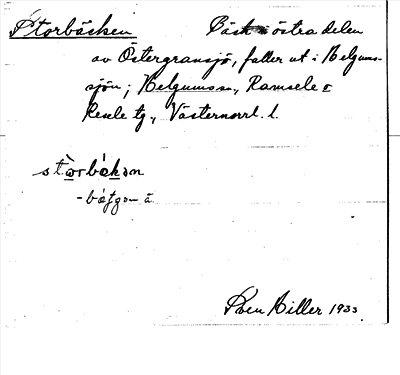 Storbäcken Bäck i östra delen
av Östergransjö, faller ut i Belgums-
sjön; Belgumsn., Ramsele s
Resele tg., Västernorrl. l.
stò̱rbæ̀kən
-bæfgən ā
Sven Hiller 1933